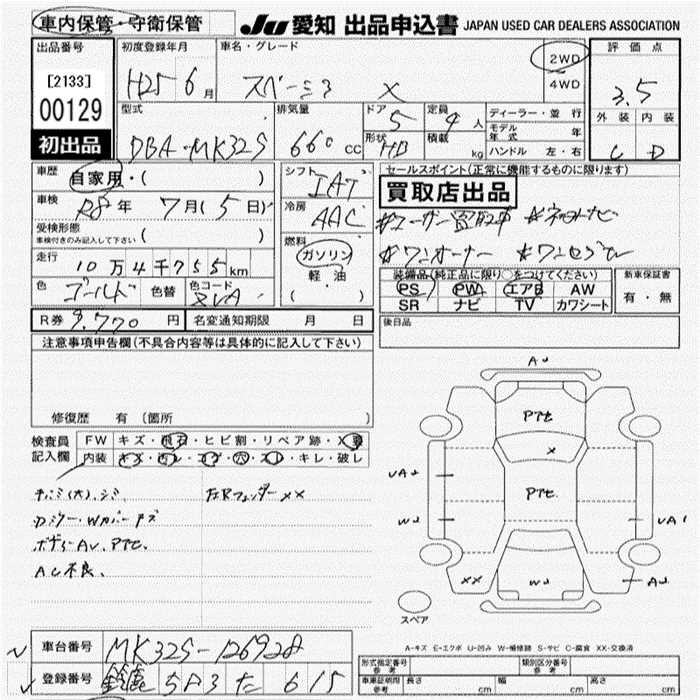 車内保管・守衛保管 JU 愛知 出品申込書 JAPAN USED CAR DEALERS ASSOCIATION
出品番号 初度登録年月 車名・グレード 2WD 4WD 評価点
[2133]
00129
初出品
H25 6月 スペーシア X 3.5
型式 排気量 ドア 定員 ディーラー・並行 外装 内装
DBA・MK32S 660cc 5 4人 モデル年式 年
形状 HB 積載 kg ハンドル 左・右 C D
車歴 自家用・( ) シフト IAT セールスポイント(正常に機能するものに限ります)
買取店出品
車検 R8年 7月(5日) 冷房 AAC
#ユーザー買取車 #ネオトナビ
受検形態
車検付きのみ記入して下さい ( ) 燃料 ガソリン
#ワンオーナー #ワンセグTV
走行 10万4千755km 軽油
装備品(純正品に限り○をつけてください) 新車保証書
色 ゴールド 色替 色コード ( ・ )
PS PW エアB AW 有・無
SR ナビ TV カワシート
R券 9,770円 名変通知期限 月 日 後日品
注意事項申告欄(不具合内容等は具体的に記入して下さい)
修復歴 有 (箇所 )
検査員記入欄 FW キズ・飛石・ヒビ割・リペア跡・X要
内装 キズ・汚レ・コゲ・穴・スレ・キレ・破レ
チュミ(大)、シミ 左右Rフェンダーxx
カジリー・Wカバーキズ
ボディーAU、PTE.
AC不良、
AU
PTE
X
UA2
PTE.
W2
UA1
XX
W2
AU
スペア
A-キズ E-エクボ U-凹み W-補修跡 S-サビ C-腐食 XX-交換済
車台番号 MK32S-126928
型式指定番号 参考 類別区分番号 参考
登録番号 鈴鹿 583 た 615
車庫証明用 参考 長さ cm 幅 cm 高さ cm